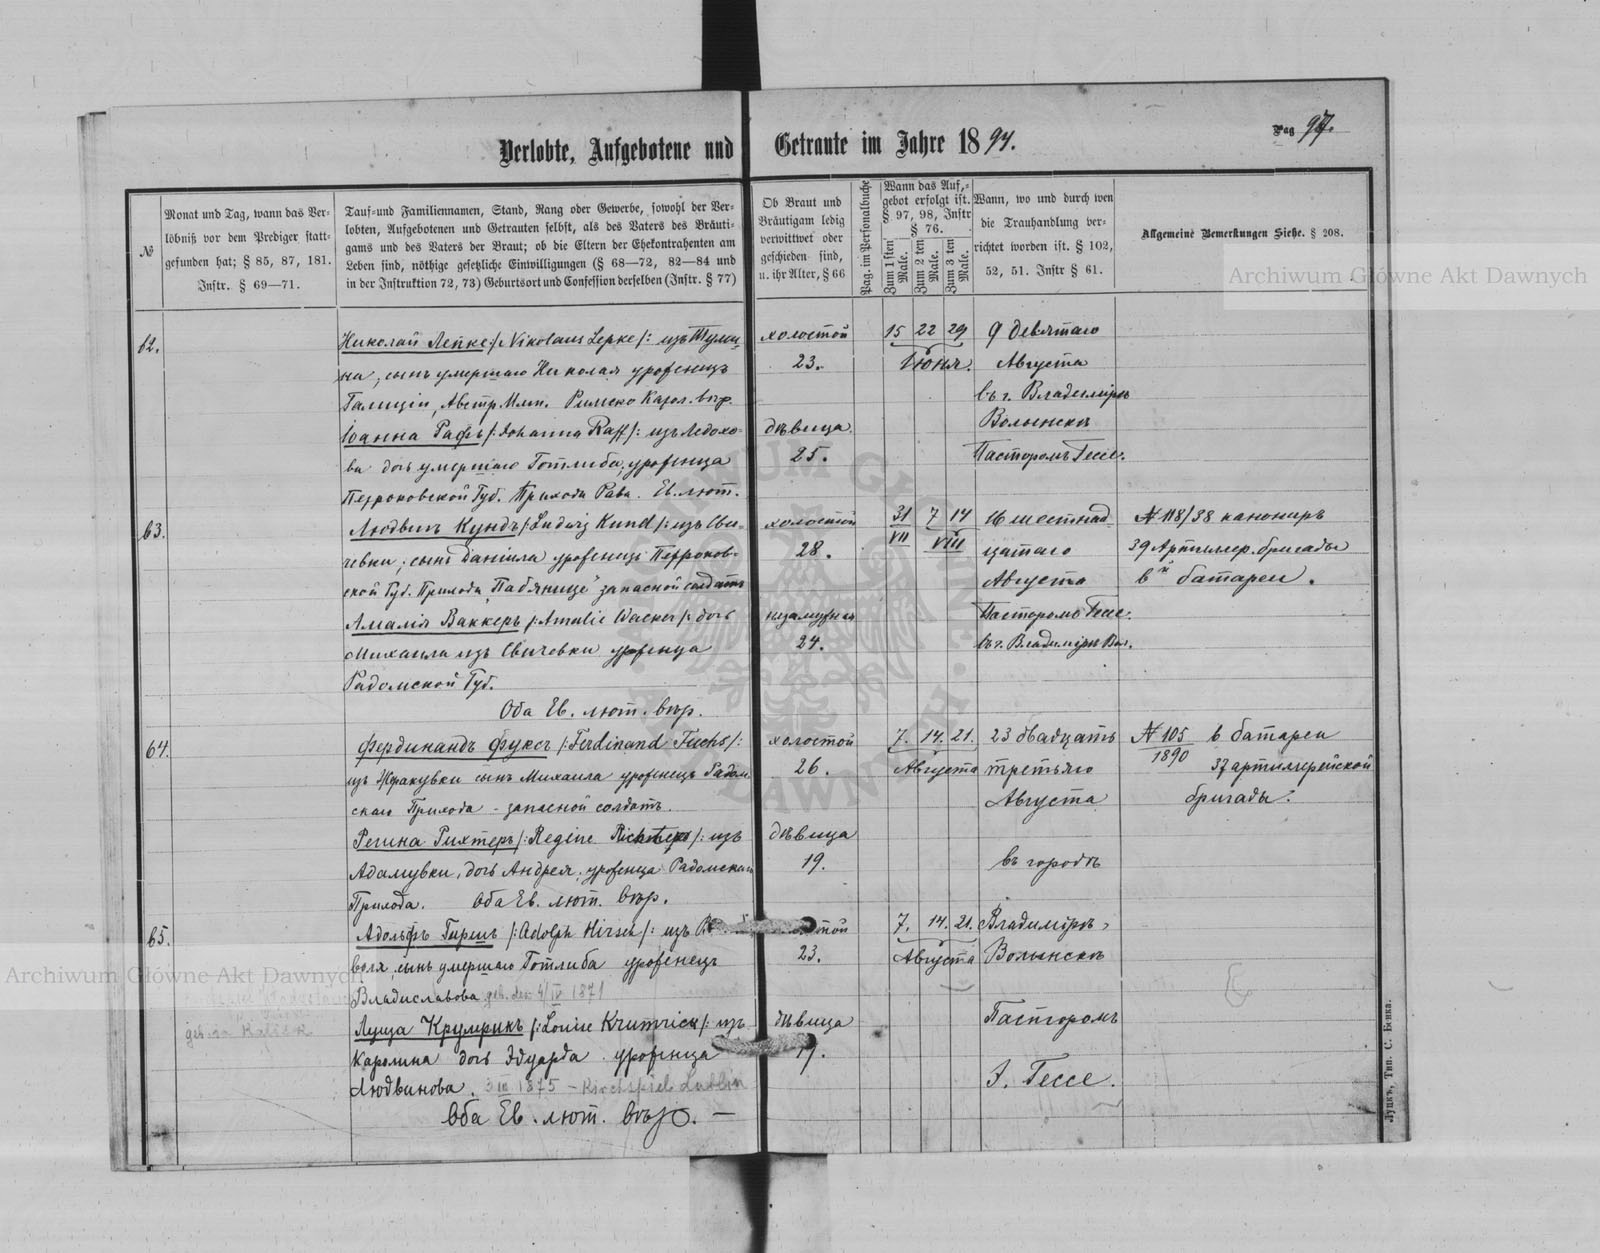 Verlobte, Aufgebotene und Getraute im Jahre 1894.
Pag 97.
№
Monat und Tag, wann das Ver-
löbniß vor dem Prediger statt-
gefunden hat; § 85, 87, 181.
Instr. § 69—71.
Tauf- und Familiennamen, Stand, Rang oder Gewerbe, sowohl der Ver-
lobten, Aufgebotenen und Getrauten selbst, als des Vaters des Bräuti-
gams und des Vaters der Braut; ob die Eltern der Ehekontrahenten am
Leben sind, nöthige gesetzliche Einwilligungen (§ 68—72, 82—84 und
in der Instruktion 72, 73) Geburtsort und Confession derselben (Instr. § 77)
Ob Braut und
Bräutigam ledig
verwittwet oder
geschieden sind,
u. ihr Alter, § 66
Pag. im Personalbuche
Wann das Auf-
gebot erfolgt ist.
§ 97, 98, Instr
§ 76.
Zum 1 sten Male.
Zum 2 ten Male.
Zum 3 ten Male.
Wann, wo und durch wen
die Trauhandlung ver-
richtet worden ist. § 102,
52, 51. Instr § 61.
Allgemeine Bemerkungen Siehe. § 208.
Archiwum Główne Akt Dawnych
62.
Николай Лепке /: Nikolaus Lepke /: изъ Тули-
на, сынъ умершаго Николая уроженецъ
Галиціи, Австр. Имп. Римско Катол. вѣр.
Іоанна Рафъ /: Johanna Raff /: изъ Ледохо-
ва дочь умершаго Готлиба, уроженца
Петроковской Губ. Прихода Рава. Ев. лют.
холостой
23.
дѣвица
25.
15 22 29
Іюня.
9 девятаго
Августа
въ г. Владимірѣ
Волынскѣ
Пасторомъ Гессе.
63.
Людвигъ Кундъ /: Ludwig Kund /: изъ Сви-
чевки, сынъ Даніила уроженецъ Петроков-
ской Губ. Прихода Пабянице запасной солдатъ
Амалія Ваккеръ /: Amalie Wacker /: дочь
Михаила изъ Свичевки уроженца
Радомской Губ.
Оба Ев. лют. вѣр.
холостой
28.
незамужняя
24.
31 7 14
VII VIII
16 шестнад-
цатаго
Августа
Пасторомъ Гессе.
въ г. Владимірѣ Вол.
№ 118/38 канониръ
39 Артиллер. бригады
6й батареи.
64.
Фердинандъ Фуксъ /: Ferdinand Fuchs /:
изъ сынъ Михаила уроженецъ Радом-
скаго Прихода - запасной солдатъ.
Регина Рихтеръ /: Regine Richter /: изъ
Адамувки, дочь Андрея, уроженца Радомскаго
Прихода. Оба Ев. лют. вѣр.
холостой
26.
дѣвица
19.
7. 14. 21.
Августа
23 двадцать
третьяго
Августа
въ городѣ
№ 105 6 батареи
1890 37 артиллерейской
бригады.
65.
Адольфъ Гиршъ /: Adolph Hirsch /: изъ
воля, сынъ умершаго Готлиба уроженецъ
Владиславова geb. den 4/IV 1871
geb. zu Kalisch
Луиза Крумрикъ /: Louise Krumrick /: изъ
Каролина дочь Эдуарда уроженца
Людвинова. 3 III 1875 – Kirchspiel Lublin
Оба Ев. лют. вѣр. —
23.
дѣвица
19.
7. 14. 21.
Августа
Владимірѣ-
Волынскѣ
Пасторомъ
Э. Гессе.
Archiwum Główne Akt Dawnych
Луцкъ, Тип. С. Бенка.